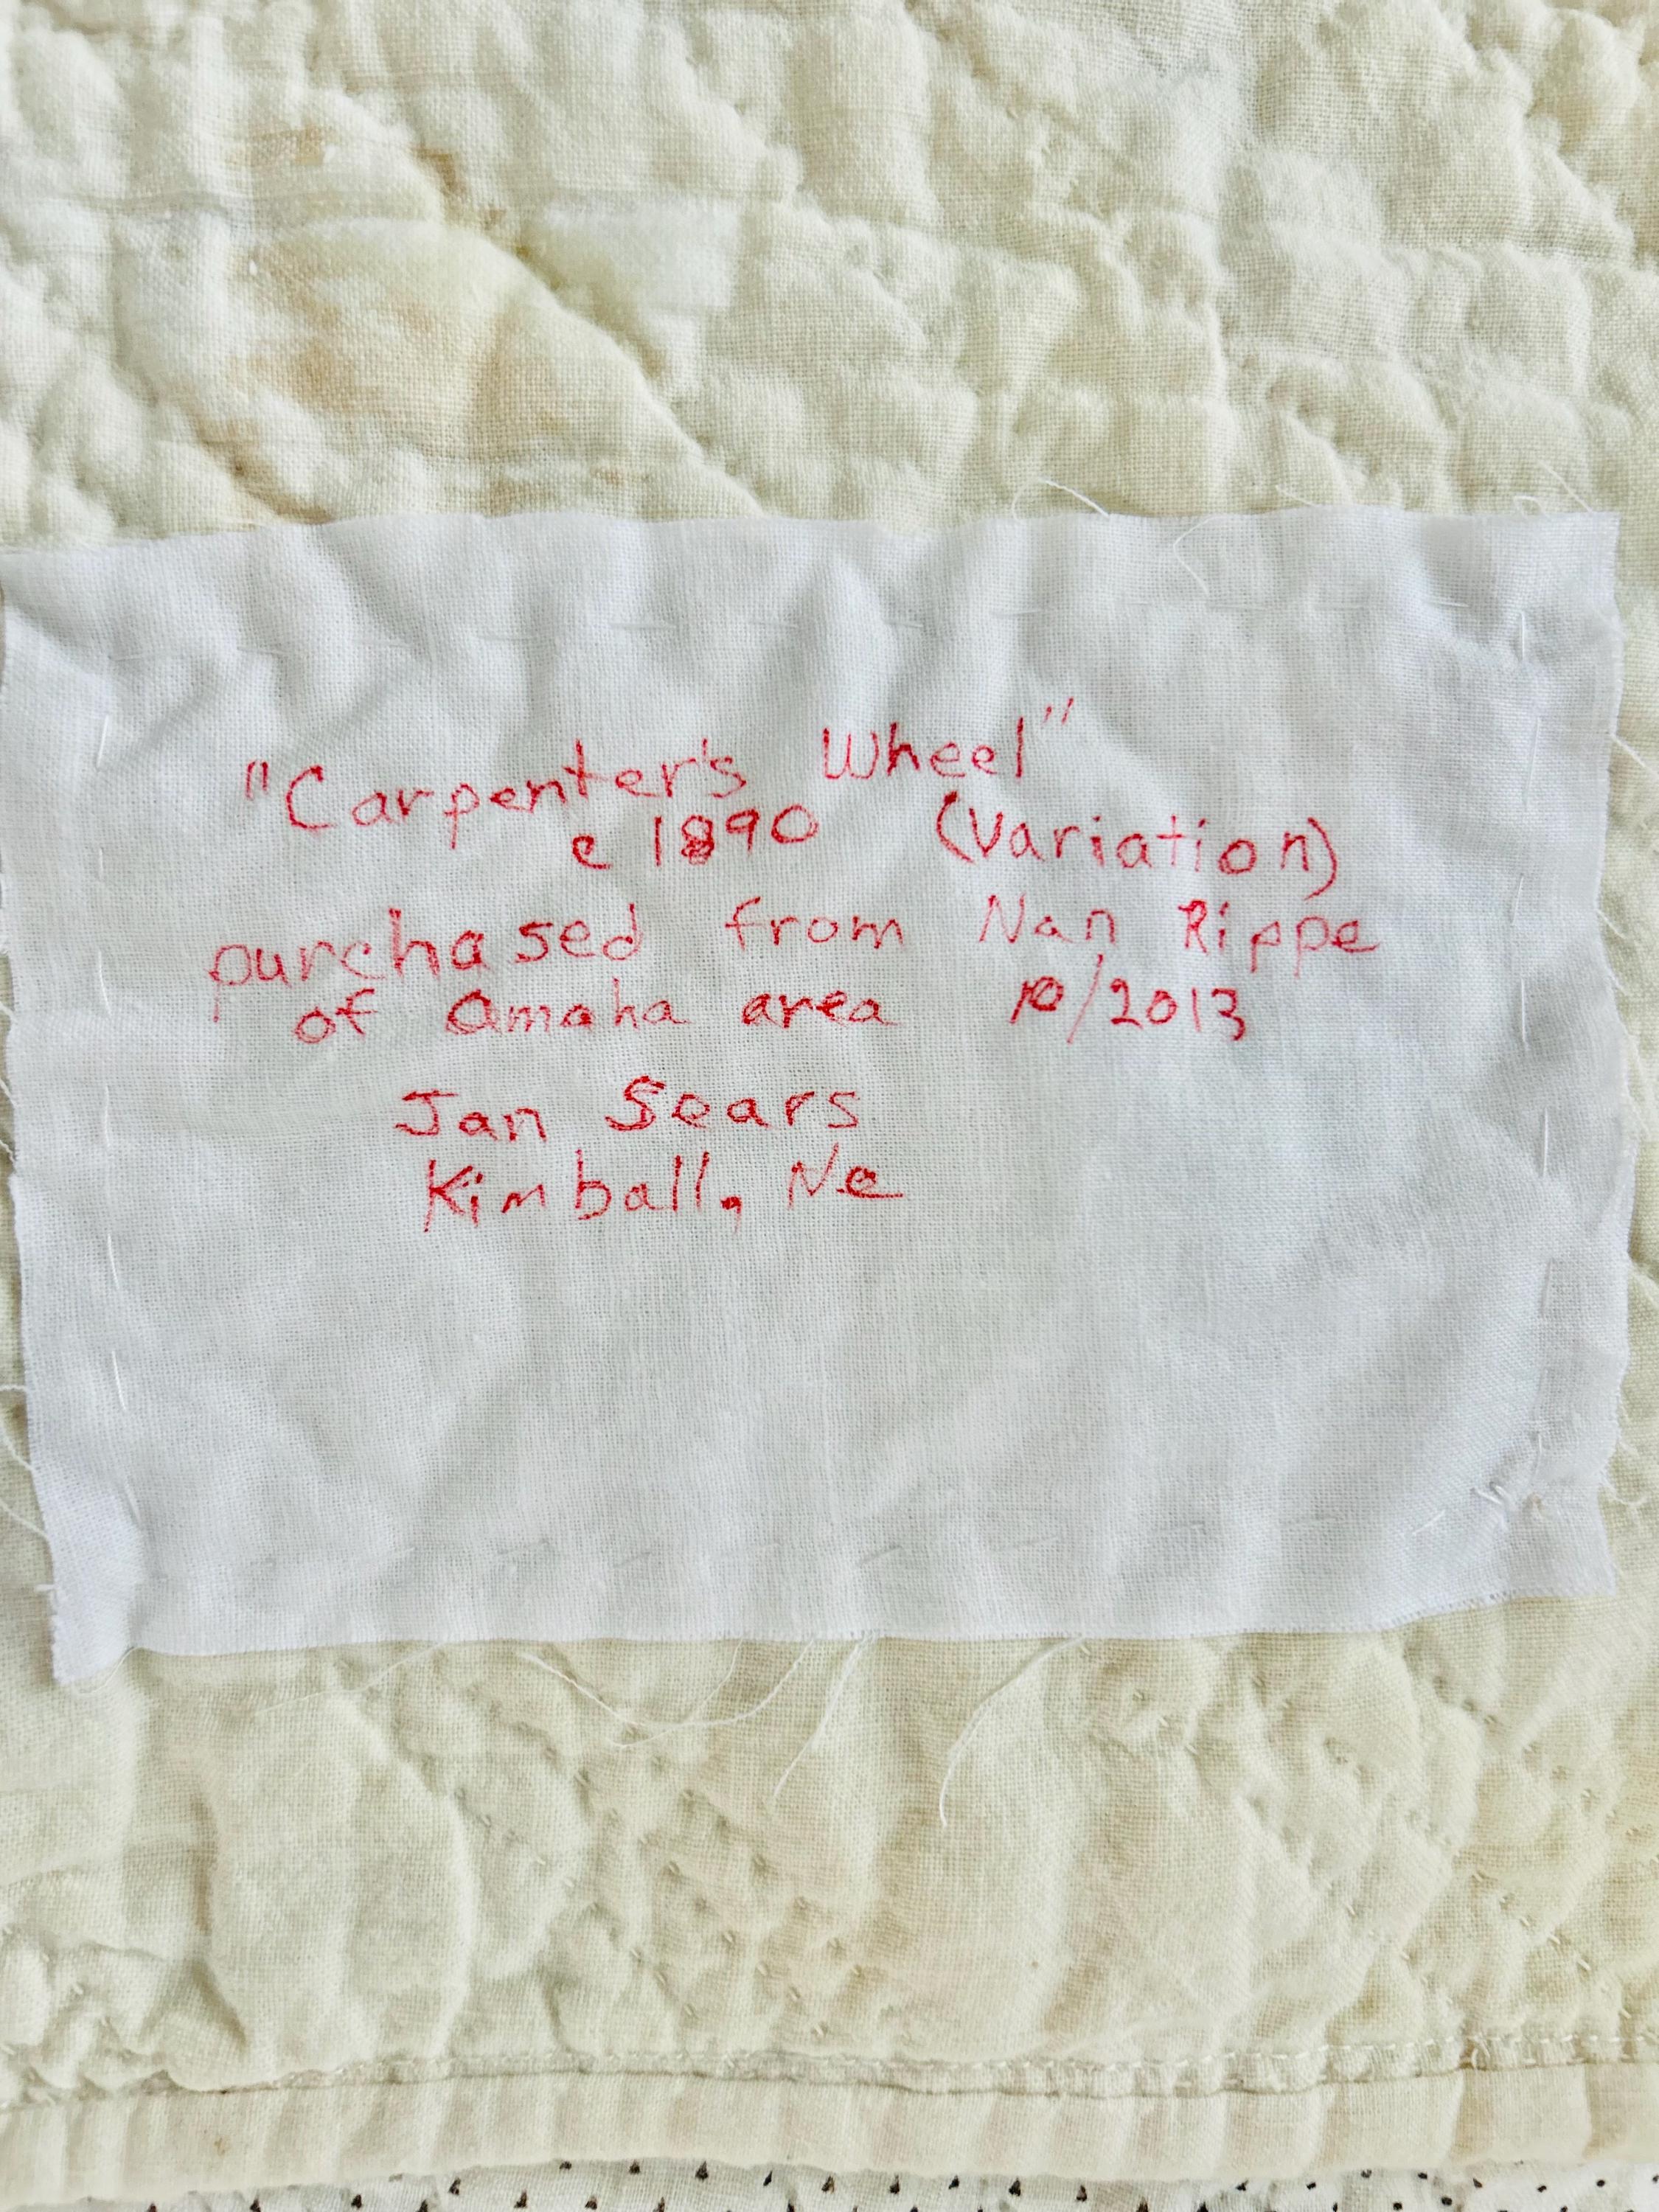 "Carpenter's Wheel"
c 1890 (Variation)
purchased from Nan Rippe
of Omaha area 10/2013
Jan Sears
Kimball, Ne